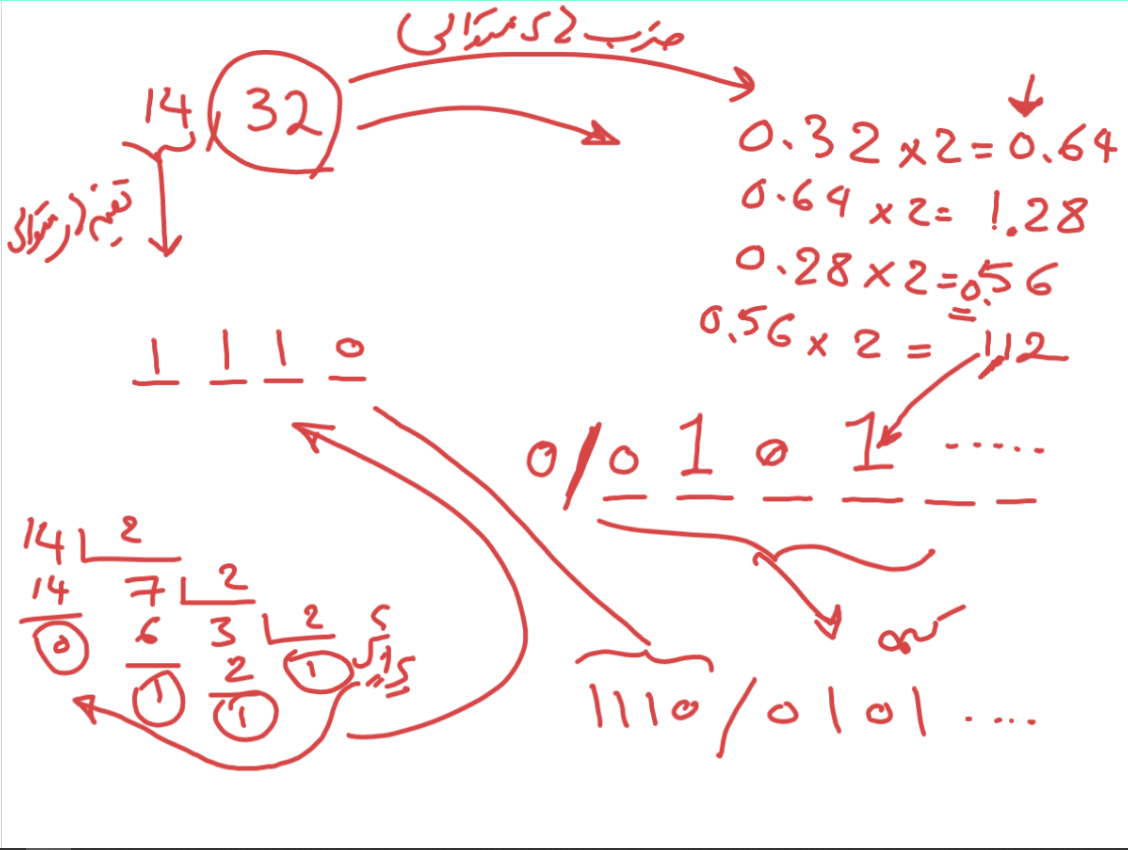 ضرب 2 ی متوالی
14/32
تقسیم متوالی
0.32 x 2 = 0.64
0.64 x 2 = 1.28
0.28 x 2 = 0.56
0.56 x 2 = 1.12
1 1 1 0
0/0 1 0 1 .....
14 2
14 7 2
0 6 3 2
1 2 1
1
1110/0101 ....